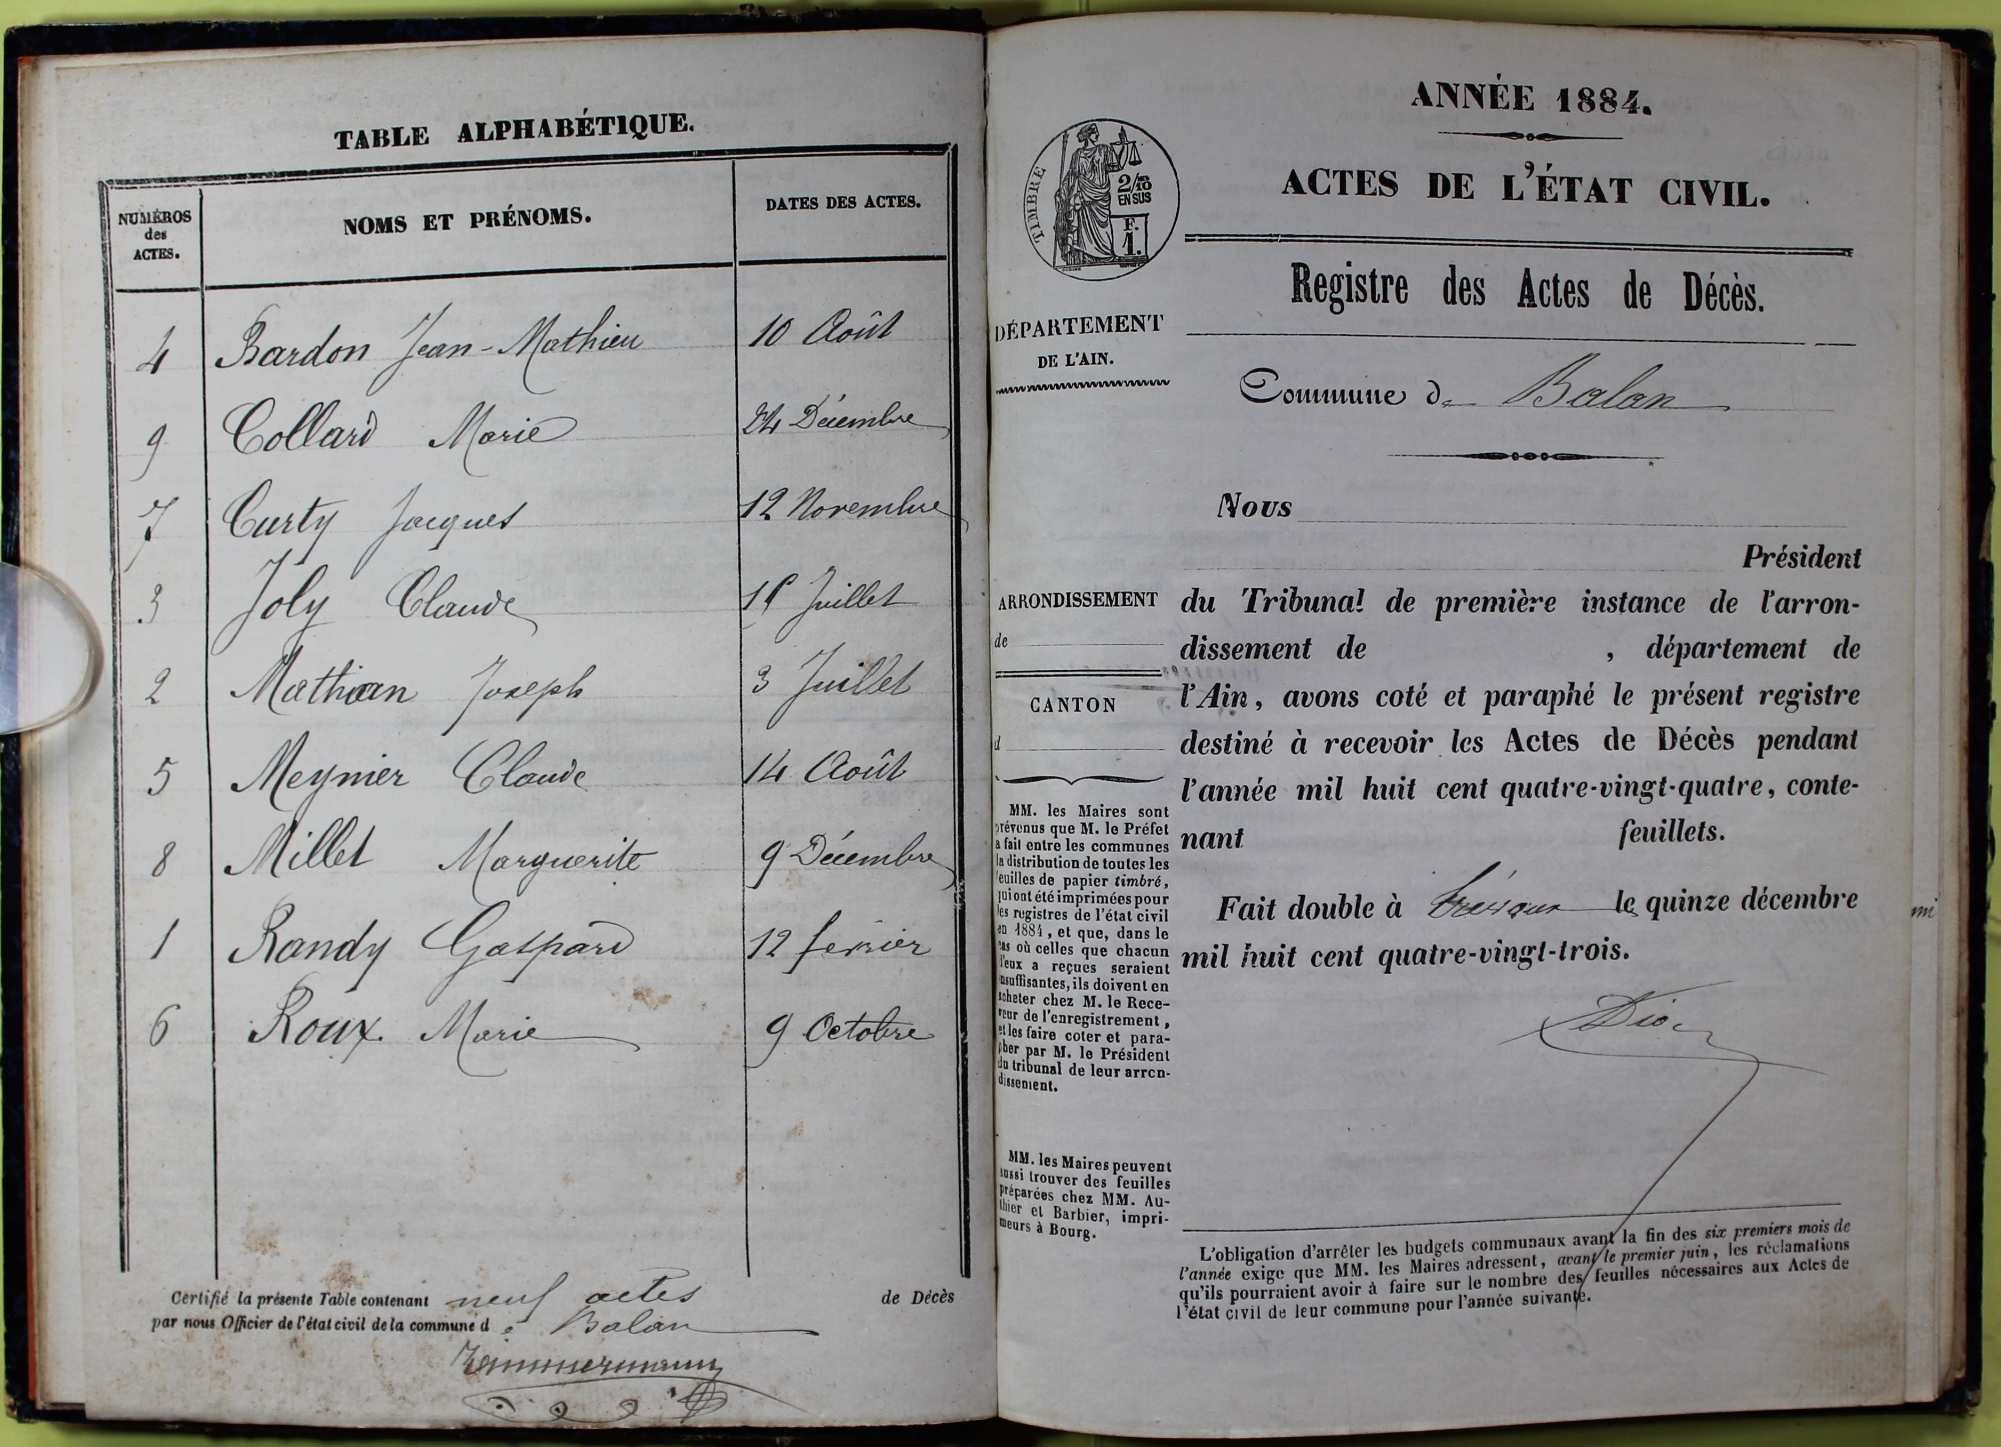 TABLE ALPHABÉTIQUE.
NUMÉROS des ACTES. NOMS ET PRÉNOMS. DATES DES ACTES.
4 Bardon Jean-Mathieu 10 Août
9 Collard Marie 24 Décembre
7 Curty Jacques 12 Novembre
3 Joly Claude Juillet
2 Mathian Joseph 3 Juillet
5 Meynier Claude 14 Août
8 Millet Marguerite 9 Décembre
1 Randy Gaspard 12 février
6 Roux Marie 9 Octobre
Certifié la présente Table contenant neuf actes de Décès
par nous Officier de l'état civil de la commune de Balan
Zimmermann
ANNÉE 1884.
ACTES DE L'ÉTAT CIVIL.
TIMBRE
2/10
EN SUS
F.
1.
Registre des Actes de Décès.
DÉPARTEMENT
DE L'AIN.
Commune de Balan
Nous
Président
ARRONDISSEMENT
de
CANTON
d
du Tribunal de première instance de l'arron-
dissement de , département de
l'Ain, avons coté et paraphé le présent registre
destiné à recevoir les Actes de Décès pendant
l'année mil huit cent quatre-vingt-quatre, conte-
nant feuillets.
Fait double à Trévoux le quinze décembre
mil huit cent quatre-vingt-trois.
mi
MM. les Maires sont
prévenus que M. le Préfet
a fait entre les communes
la distribution de toutes les
feuilles de papier timbré,
qui ont été imprimées pour
les registres de l'état civil
en 1884, et que, dans le
cas où celles que chacun
d'eux a reçues seraient
insuffisantes, ils doivent en
acheter chez M. le Rece-
veur de l'enregistrement,
et les faire coter et para-
pher par M. le Président
du tribunal de leur arron-
dissement.
MM. les Maires peuvent
aussi trouver des feuilles
préparées chez MM. Au-
thier et Barbier, impri-
meurs à Bourg.
L'obligation d'arrêter les budgets communaux avant la fin des six premiers mois de
l'année exige que MM. les Maires adressent, avant le premier juin, les réclamations
qu'ils pourraient avoir à faire sur le nombre des feuilles nécessaires aux Actes de
l'état civil de leur commune pour l'année suivante.